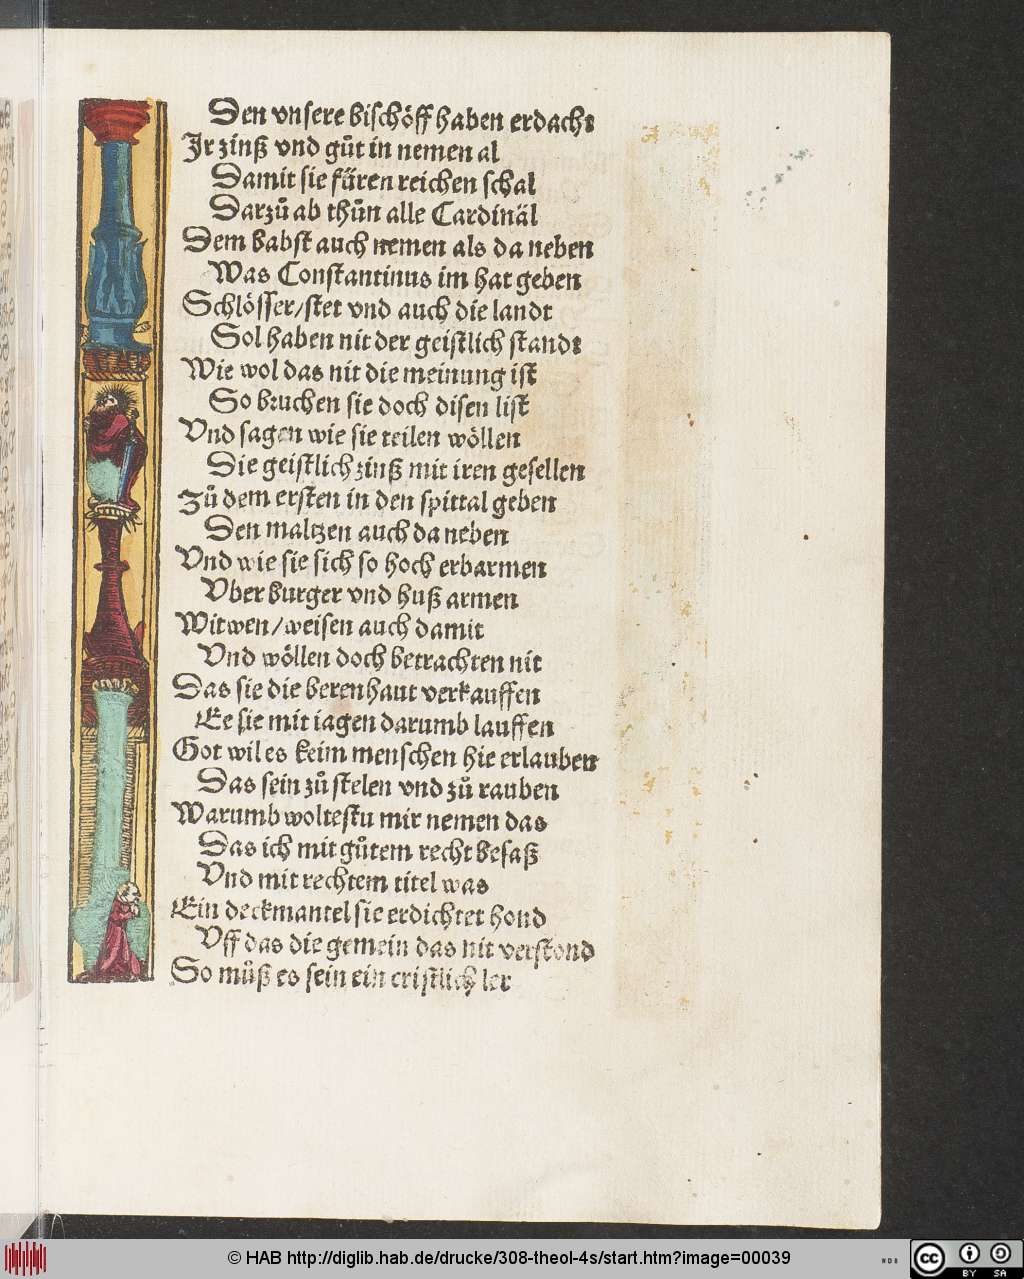 Den vnsere bischöff haben erdacht
Jr zinß vnd gůt in nemen al
Damit sie füren reichen schal
Darzů ab thůn alle Cardinäl
Dem babst auch nemen als da neben
Was Constantinus im hat geben
Schlösser/stet vnd auch die landt
Sol haben nit der geistlich standt
Wie wol das nit die meinung ist
So bruchen sie doch disen list
Vnd sagen wie sie teilen wöllen
Die geistlich zinß mit iren gesellen
Zů dem ersten in den spittal geben
Den maltzen auch da neben
Vnd wie sie sich so hoch erbarmen
Vber burger vnd huß armen
Witwen/weisen auch damit
Vnd wöllen doch betrachten nit
Das sie die beren haut verkauffen
Ee sie mit iagen darumb lauffen
Got wil es keim menschen hie erlauben
Das sein zů stelen vnd zů rauben
Warumb woltestu mir nemen das
Das ich mit gůtem recht besaß
Vnd mit rechtem titel was
Ein deckmantel sie erdichtet hond
Vff das die gemein das nit verstond
So můß es sein ein cristlich ler
© HAB http://diglib.hab.de/drucke/308-theol-4s/start.htm?image=00039
WDB
cc BY SA